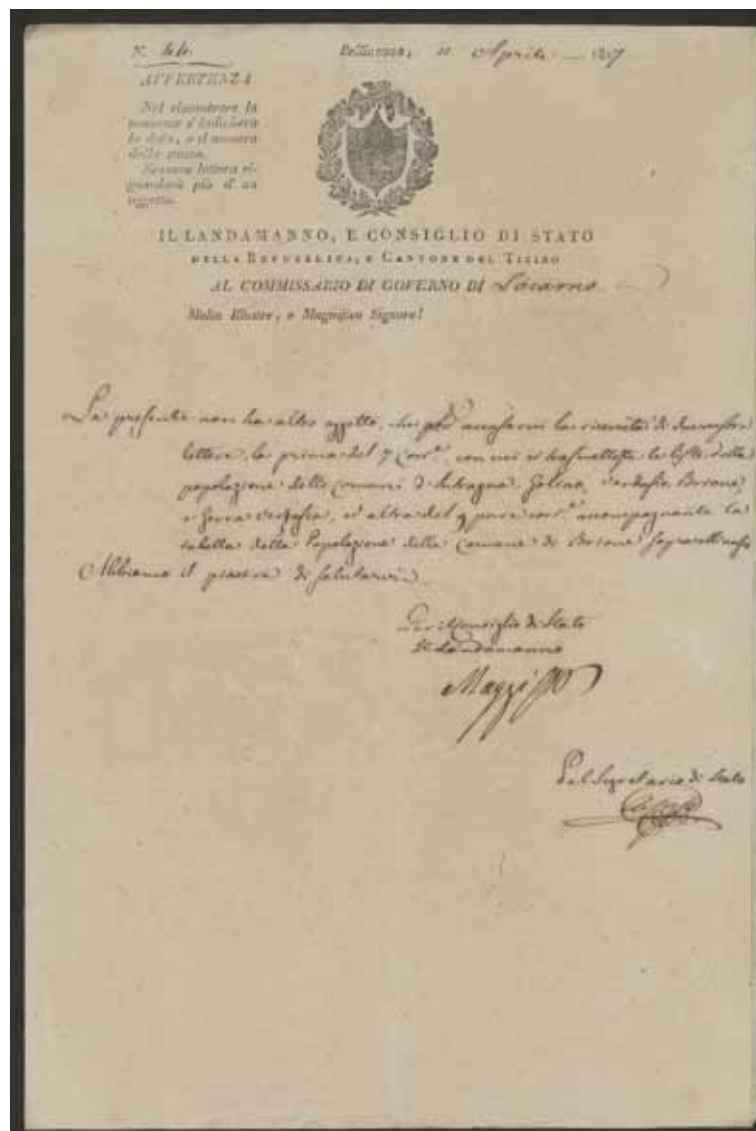 N. 44.
Bellinzona, 11 Aprile 1817
AVVERTENZA
Nel riscontrare la
presente s'indicherà
la data, e il numero
della stessa.
Nessuna lettera ri-
guarderà più d'un
oggetto.
IL LANDAMANNO, E CONSIGLIO DI STATO
DELLA REPUBBLICA, E CANTONE DEL TICINO
AL COMMISSARIO DI GOVERNO DI Locarno
Molto Illustre, e Magnifico Signore!
La presente non ha altro oggetto, che per accusarvi la ricevuta di due vostre
lettere, la prima del 7 corr.e, con cui ci trasmetteste le liste della
popolazione delle comuni d'Intragna, Golino, Verdasio, Brione,
e Gerra Verzasca, ed altra del 9 pure corr.e accompagnante la
tabella della Popolazione della comune di Brione sopra
Abbiamo il piacere di salutarvi
Per il Consiglio di Stato
Il Landamanno
Maggi
Pel Segretario di Stato